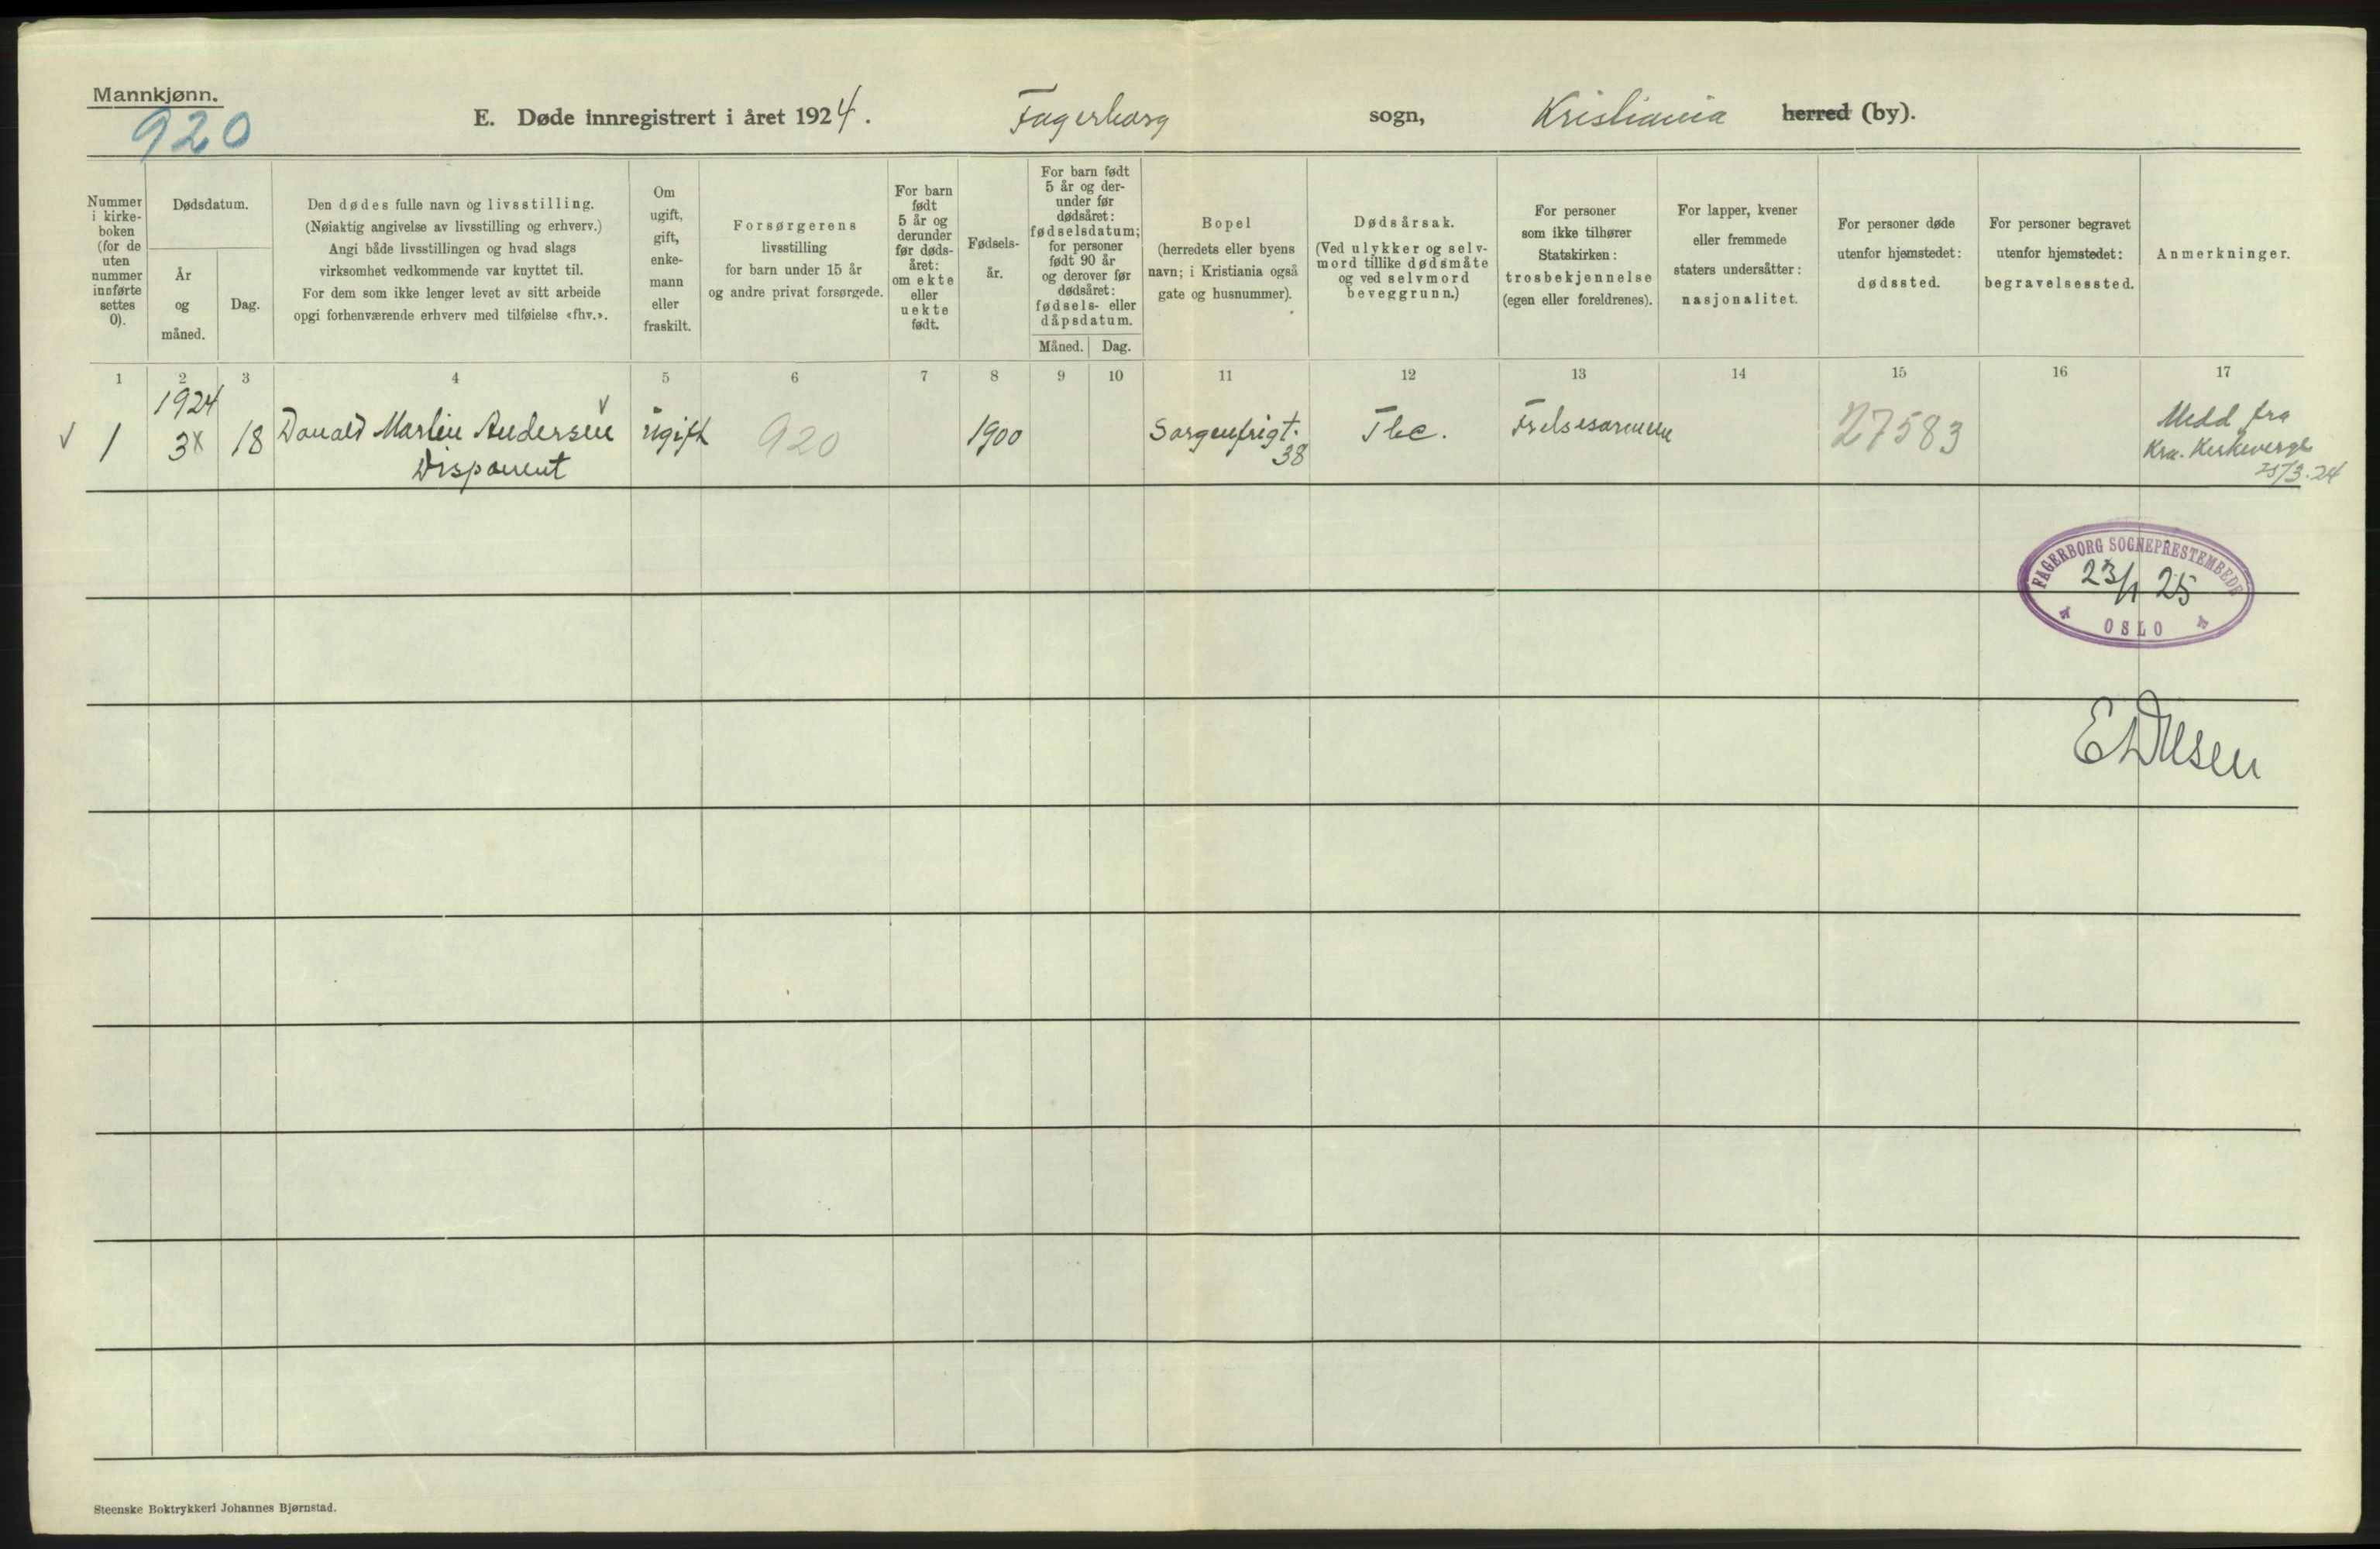 Mannkjønn.
920
E. Døde innregistrert i året 1924. Fagerborg sogn, Kristiania herred (by).
Nummer
i kirke-
boken
(for de
uten
nummer
innførte
settes
0).
Dødsdatum.
År
og
måned.
Dag.
Den dødes fulle navn og livsstilling.
(Nøiaktig angivelse av livsstilling og erhverv.)
Angi både livsstillingen og hvad slags
virksomhet vedkommende var knyttet til.
For dem som ikke lenger levet av sitt arbeide
opgi forhenværende erhverv med tilføielse «fhv.».
Om
ugift,
gift,
enke-
mann
eller
fraskilt.
Forsørgerens
livsstilling
for barn under 15 år
og andre privat forsørgede.
For barn
født
5 år og
derunder
før døds-
året:
om ekte
eller
uekte
født.
Fødsels-
år.
For barn født
5 år og der-
under før
dødsåret:
fødselsdatum;
for personer
født 90 år
og derover før
dødsåret:
fødsels- eller
dåpsdatum.
Måned. Dag.
Bopel
(herredets eller byens
navn; i Kristiania også
gate og husnummer).
Dødsårsak.
(Ved ulykker og selv-
mord tillike dødsmåte
og ved selvmord
beveggrunn.)
For personer
som ikke tilhører
Statskirken:
trosbekjennelse
(egen eller foreldrenes).
For lapper, kvener
eller fremmede
staters undersåtter:
nasjonalitet.
For personer døde
utenfor hjemstedet:
dødssted.
For personer begravet
utenfor hjemstedet:
begravelsessted.
Anmerkninger.
1 2 3 4 5 6 7 8 9 10 11 12 13 14 15 16 17
1924
√ 1 3x 18 Donald Martin Andersen √ ugift 920 1900 Sorgenfrigt. Tbc. Frelsesarmeen 27583 Medd fra
Disponent 38 Kra. Kirkeverge
25/3.24
FAGERBORG SOGNEPRESTEMBEDE
23/1 25
OSLO
Steenske Boktrykkeri Johannes Bjørnstad.